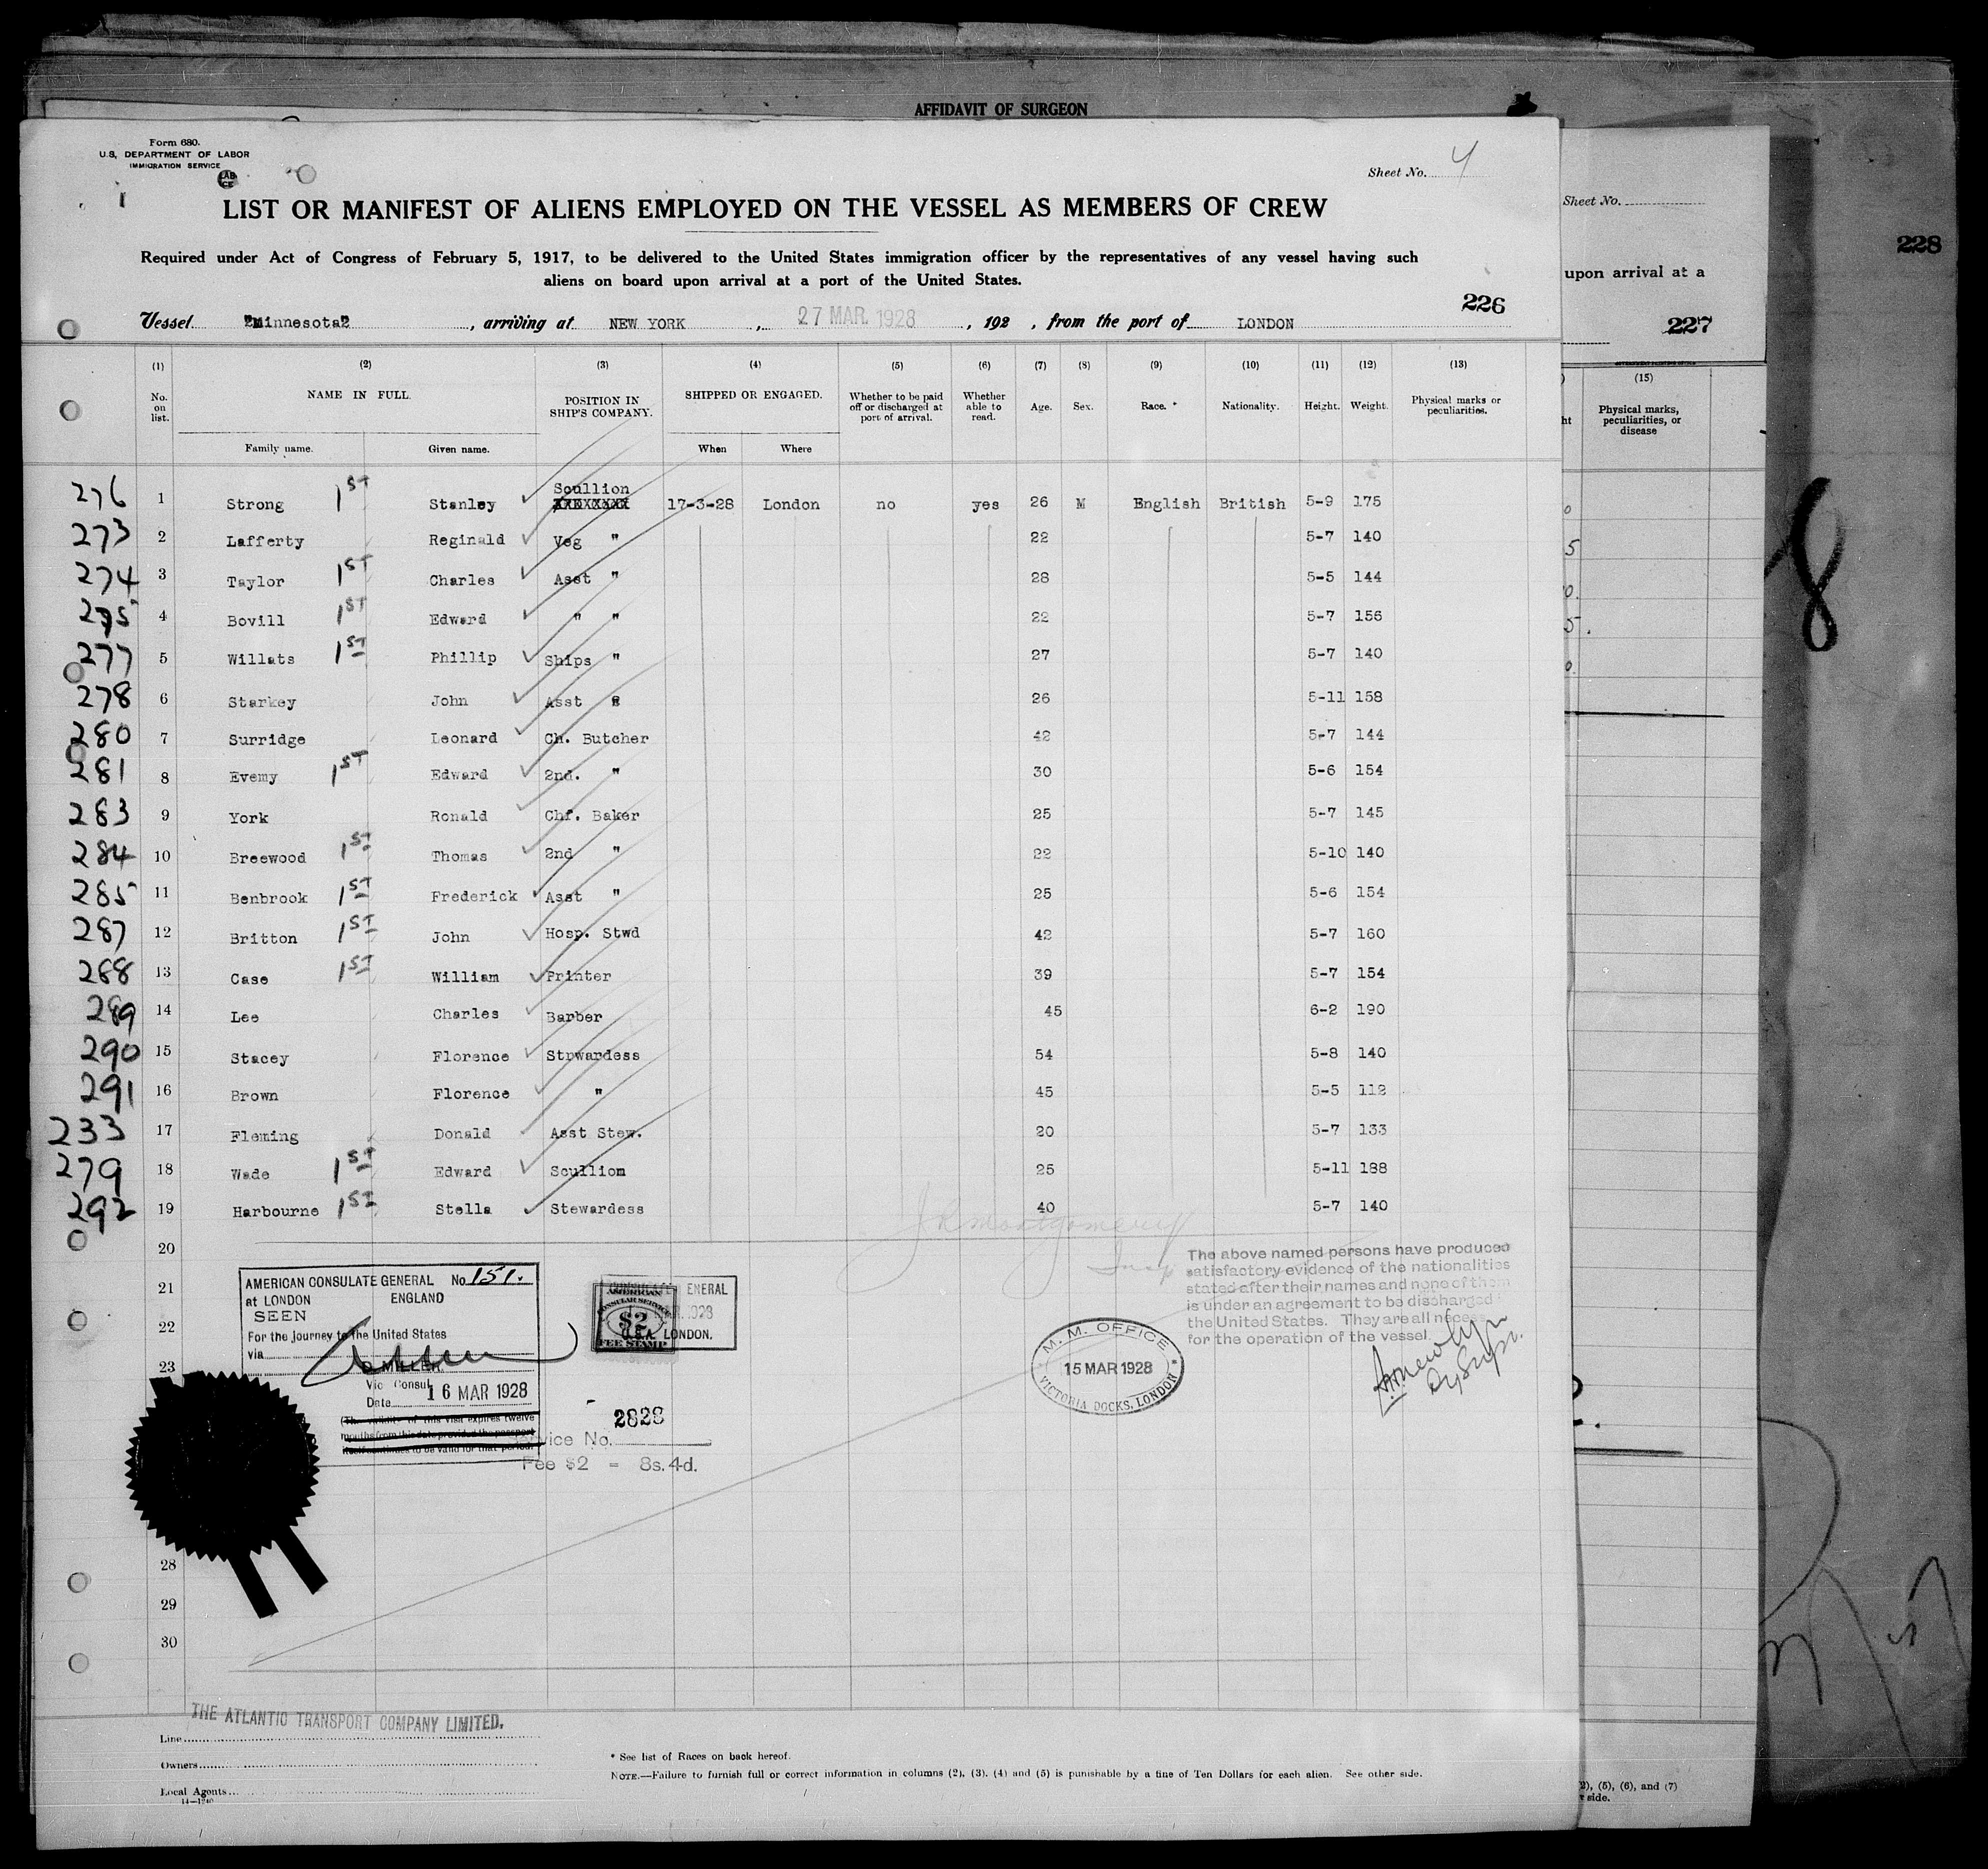 AFFIDAVIT OF SURGEON
Form 680.
U.S. DEPARTMENT OF LABOR
IMMIGRATION SERVICE
Sheet No. 4
LIST OR MANIFEST OF ALIENS EMPLOYED ON THE VESSEL AS MEMBERS OF CREW
Required under Act of Congress of February 5, 1917, to be delivered to the United States immigration officer by the representatives of any vessel having such
aliens on board upon arrival at a port of the United States.
226
Vessel "Minnesota", arriving at NEW YORK, 27 MAR 1928, 192 , from the port of LONDON
(1) (2) (3) (4) (5) (6) (7) (8) (9) (10) (11) (12) (13)
No. on list. NAME IN FULL. POSITION IN SHIP'S COMPANY. SHIPPED OR ENGAGED. Whether to be paid off or discharged at port of arrival. Whether able to read. Age. Sex. Race. * Nationality. Height. Weight. Physical marks or peculiarities.
Family name. Given name. When Where
276 1 Strong 1ST Stanley Scullion XXXXXXXX 17-3-28 London no yes 26 M English British 5-9 175
273 2 Lafferty Reginald Veg " 22 5-7 140
274 3 Taylor 1ST Charles Asst " 28 5-5 144
275 4 Bovill 1ST Edward " " 22 5-7 156
277 5 Willats 1ST Phillip Ships " 27 5-7 140
278 6 Starkey John Asst " 26 5-11 158
280 7 Surridge Leonard Ch. Butcher 42 5-7 144
281 8 Evemy 1ST Edward 2nd. " 30 5-6 154
283 9 York Ronald Chf. Baker 25 5-7 145
284 10 Breewood 1ST Thomas 2nd " 22 5-10 140
285 11 Benbrook 1ST Frederick Asst " 25 5-6 154
287 12 Britton 1ST John Hosp. Stwd 42 5-7 160
288 13 Case 1ST William Printer 39 5-7 154
289 14 Lee Charles Barber 45 6-2 190
290 15 Stacey Florence Strwardess 54 5-8 140
291 16 Brown Florence " 45 5-5 112
233 17 Fleming Donald Asst Stew. 20 5-7 133
279 18 Wade 1ST Edward Scullion 25 5-11 188
292 19 Harbourne 1ST Stella Stewardess 40 5-7 140
20
21
22
23
28
29
30
JR Montgomery
Insp
AMERICAN CONSULATE GENERAL No. 151.
at LONDON ENGLAND
SEEN
For the journey to the United States
via
MILLER
Vic Consul
Date 16 MAR 1928
(The validity of this visa expires twelve
months from this date provided the passport
itself continues to be valid for that period.
AMERICAN
CONSULAR SERVICE
$2
FEE STAMP
ENERAL
1928
U.S.A. LONDON.
2828
Service No.
Fee $2 = 8s. 4d.
M. M. OFFICE
15 MAR 1928
VICTORIA DOCKS, LONDON
The above named persons have produced
satisfactory evidence of the nationalities
stated after their names and none of them
is under an agreement to be discharged
the United States. They are all neces
for the operation of the vessel.
Dy Supt.
THE ATLANTIC TRANSPORT COMPANY LIMITED.
Line
Owners
Local Agents
14—1240
* See list of Races on back hereof.
NOTE.—Failure to furnish full or correct information in columns (2), (3), (4) and (5) is punishable by a fine of Ten Dollars for each alien. See other side.
Sheet No.
228
upon arrival at a
227
(15)
Physical marks,
peculiarities, or
disease
8
2), (5), (6), and (7)
side.